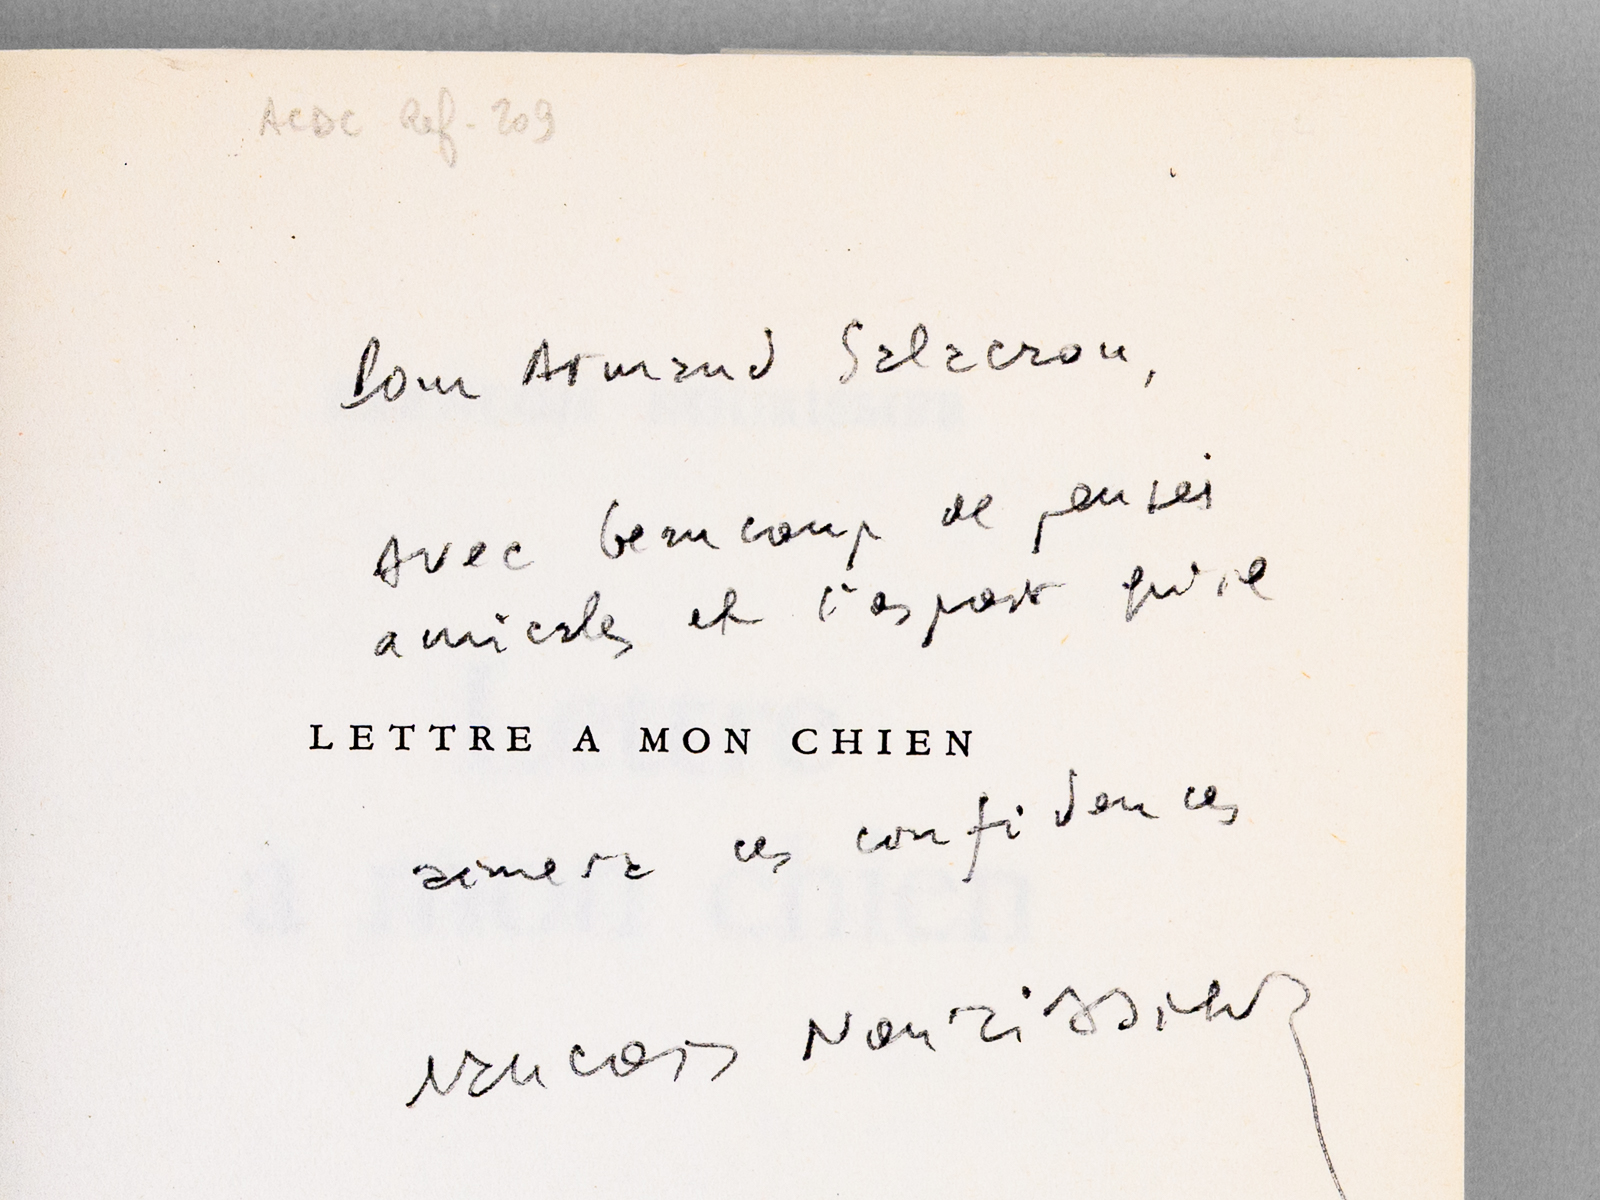 ACDC Ref. 209
Pour Armand Salacrou,
Avec beaucoup de pensées
amicales et l'espoir qu'il
LETTRE A MON CHIEN
aimera ces confidences
François Nourissier